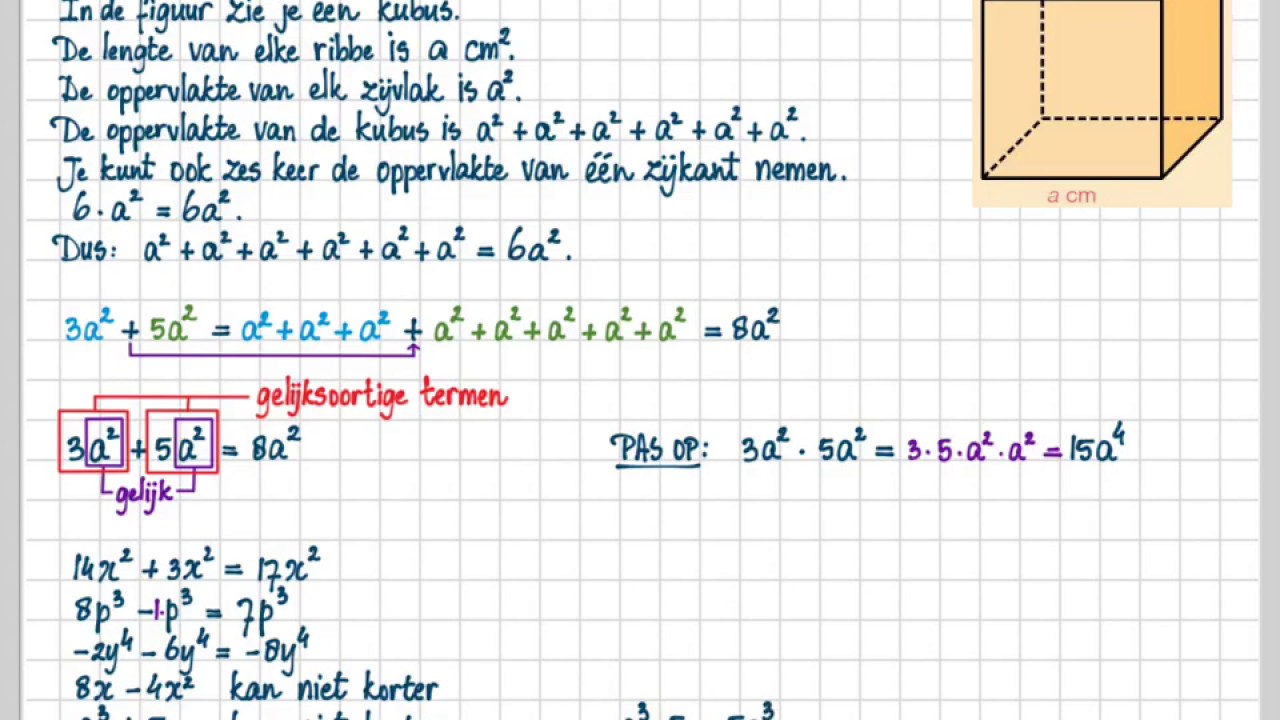 In de figuur zie je een kubus.
De lengte van elke ribbe is a cm².
De oppervlakte van elk zijvlak is a².
De oppervlakte van de kubus is a² + a² + a² + a² + a² + a².
Je kunt ook zes keer de oppervlakte van één zijkant nemen.
6 · a² = 6a².
Dus: a² + a² + a² + a² + a² + a² = 6a².
a cm
3a² + 5a² = a² + a² + a² + a² + a² + a² + a² + a² = 8a²
gelijksoortige termen
3a² + 5a² = 8a²
gelijk
PAS OP: 3a² · 5a² = 3 · 5 · a² · a² = 15a⁴
14x² + 3x² = 17x²
8p³ - 1·p³ = 7p³
-2y⁴ - 6y⁴ = -8y⁴
8x - 4x² kan niet korter